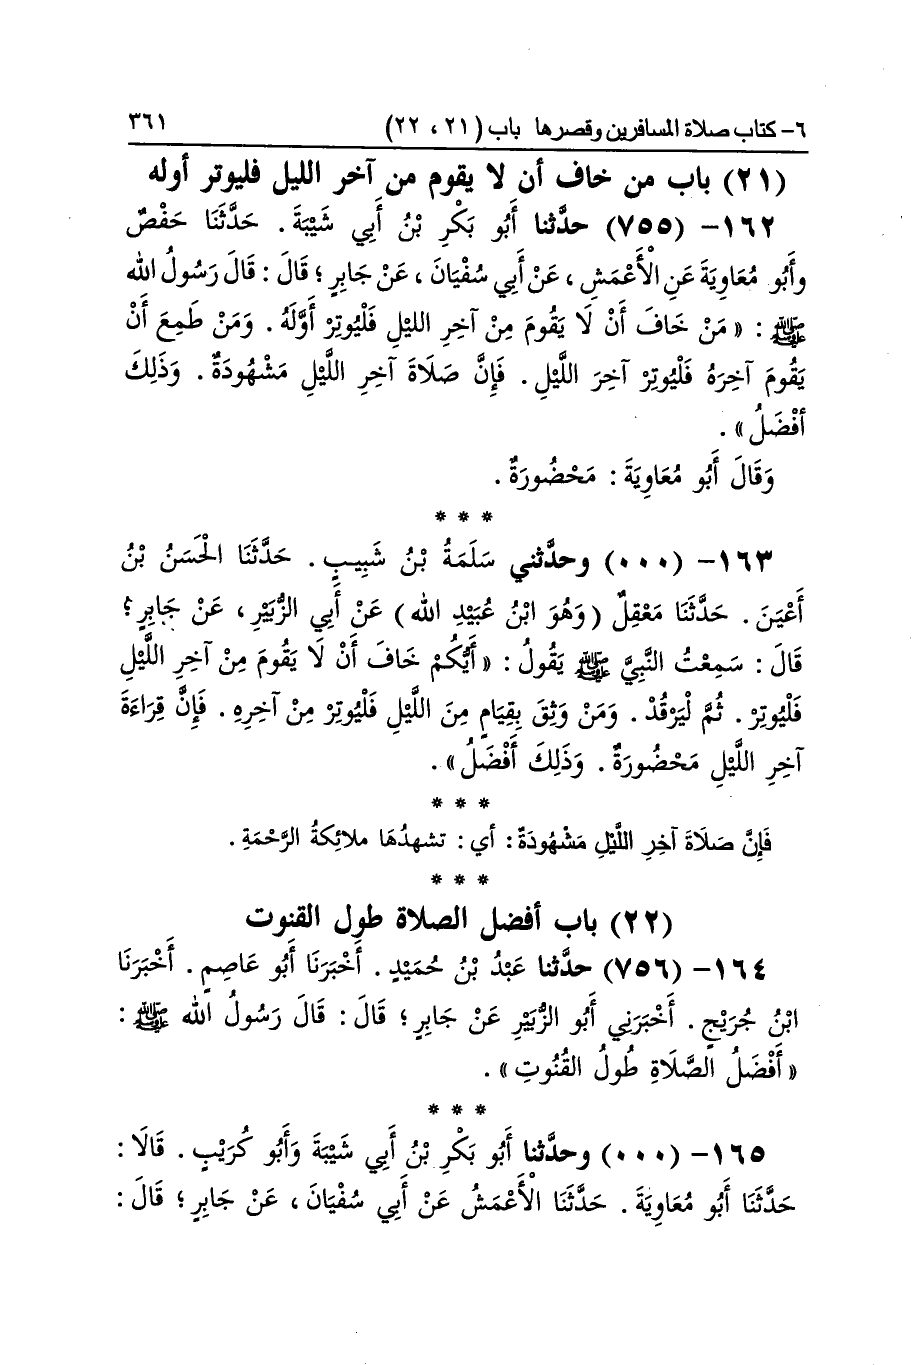 ٦- كتاب صلاة المسافرين وقصرها باب (٢١، ٢٢) ٣٦١
(٢١) باب من خاف أن لا يقوم من آخر الليل فليوتر أوله
١٦٢- (٧٥٥) حدَّثنا أَبُو بَكْرِ بْنُ أَبِي شَيْبَةَ. حَدَّثَنَا حَفْصٌ
وأَبُو مُعَاوِيَةَ عَنِ الْأَعْمَشِ، عَنْ أَبِي سُفْيَانَ، عَنْ جَابِرٍ؛ قَالَ: قَالَ رَسُولُ الله
ﷺ: «مَنْ خَافَ أَنْ لَا يَقُومَ مِنْ آخِرِ الليْلِ فَلْيُوتِرْ أَوَّلَهُ. وَمَنْ طَمِعَ أَنْ
يَقُومَ آخِرَهُ فَلْيُوتِرْ آخِرَ اللَّيْلِ. فَإِنَّ صَلَاةَ آخِرِ اللَّيْلِ مَشْهُودَةٌ. وَذَلِكَ
أفْضَلُ».
وَقَالَ أَبُو مُعَاوِيَةَ: مَحْضُورَةٌ.
* * *
١٦٣- (٠٠٠) وحدَّثني سَلَمَةُ بْنُ شَبِيبٍ. حَدَّثَنَا الْحَسَنُ بْنُ
أَعْيَنَ. حَدَّثَنَا مَعْقِلٌ (وَهُوَ ابْنُ عُبَيْدِ الله) عَنْ أَبِي الزُّبَيْرِ، عَنْ جَابِرٍ؛
قَالَ: سَمِعْتُ النَّبِيَّ ﷺ يَقُولُ: «أَيُّكُمْ خَافَ أَنْ لَا يَقُومَ مِنْ آخِرِ اللَّيْلِ
فَلْيُوتِرْ. ثُمَّ لْيَرْقُدْ. وَمَنْ وَثِقَ بِقِيَامٍ مِنَ اللَّيْلِ فَلْيُوتِرْ مِنْ آخِرِهِ. فَإِنَّ قِرَاءَةَ
آخِرِ اللَّيْلِ مَحْضُورَةٌ. وَذَلِكَ أَفْضَلُ».
* * *
فَإِنَّ صَلَاةَ آخِرِ اللَّيْلِ مَشْهُودَةٌ: أي: تشهدُهَا ملائِكةُ الرَّحْمَةِ.
* * *
(٢٢) باب أفضل الصلاة طول القنوت
١٦٤- (٧٥٦) حدَّثنا عَبْدُ بْنُ حُمَيْدٍ. أَخْبَرَنَا أَبُو عَاصِمٍ. أَخْبَرَنَا
ابْنُ جُرَيْجٍ. أَخْبَرَنِي أَبُو الزُّبَيْرِ عَنْ جَابِرٍ؛ قَالَ: قَالَ رَسُولُ الله ﷺ:
«أَفْضَلُ الصَّلَاةِ طُولُ القُنُوتِ».
* * *
١٦٥- (٠٠٠) وحدَّثنا أَبُو بَكْرِ بْنُ أَبِي شَيْبَةَ وَأَبُو كُرَيْبٍ. قَالَا:
حَدَّثَنَا أَبُو مُعَاوِيَةَ. حَدَّثَنَا الْأَعْمَشُ عَنْ أَبِي سُفْيَانَ، عَنْ جَابِرٍ؛ قَالَ: